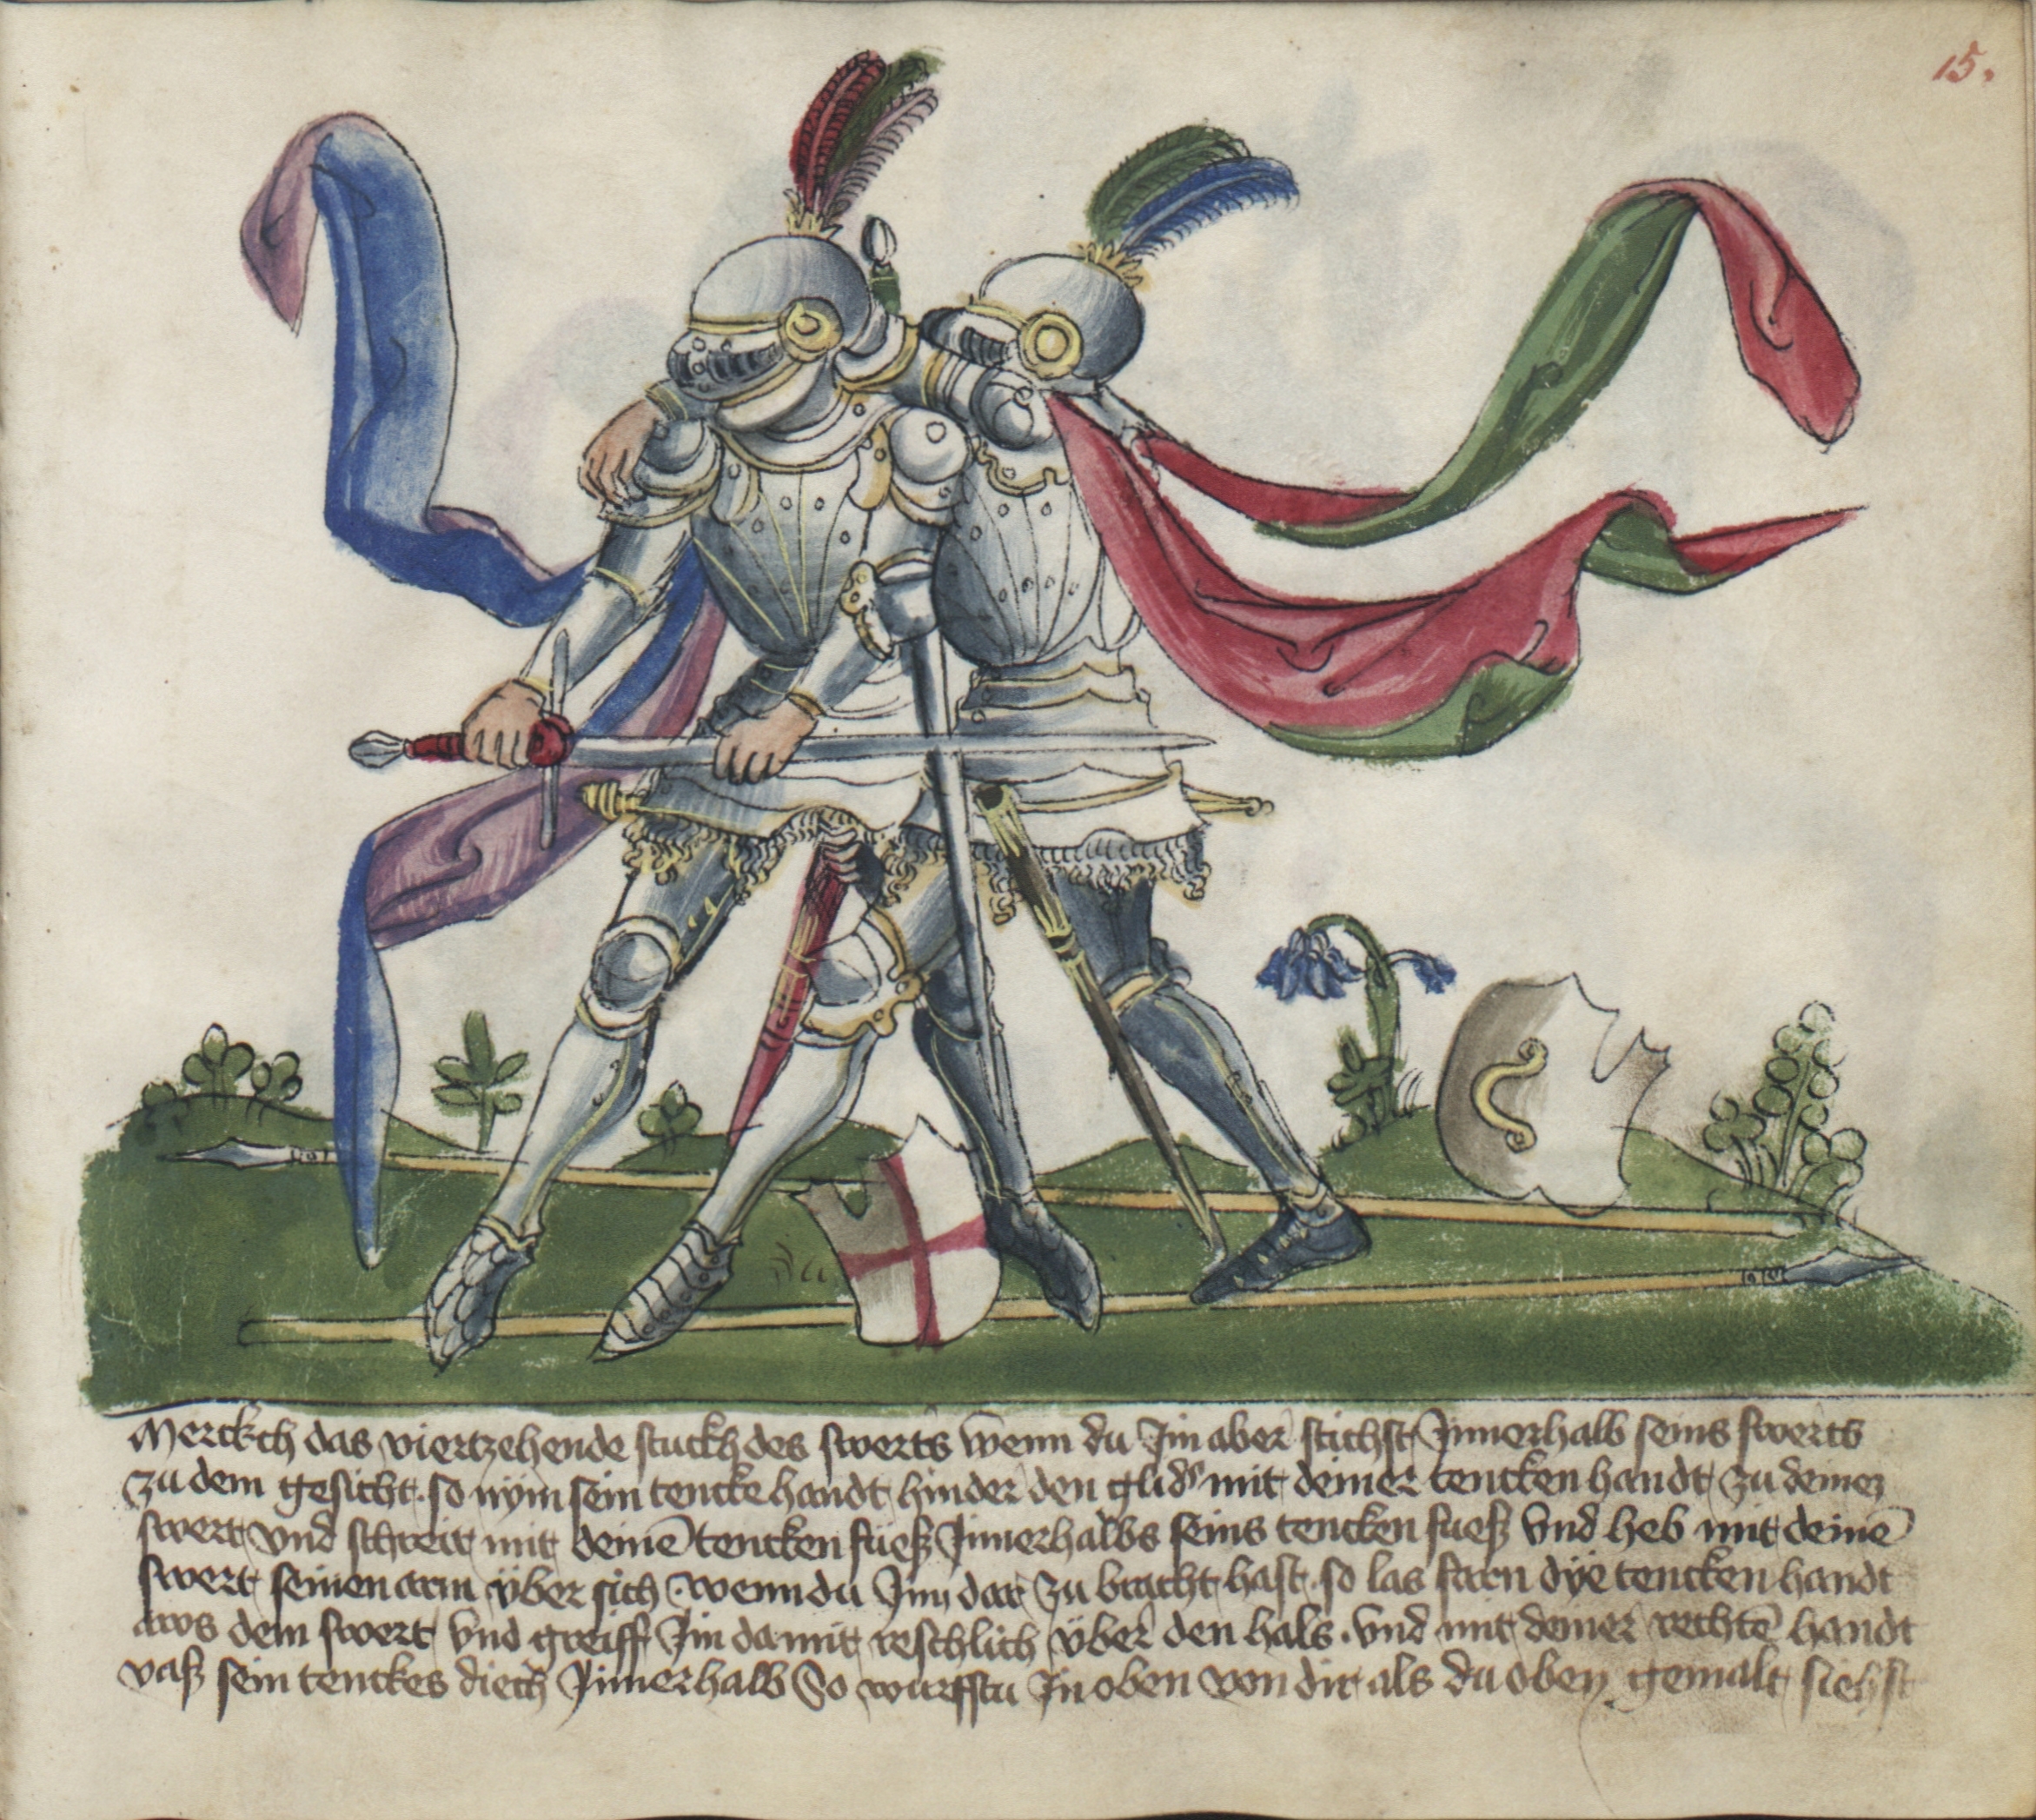 15.
Merckch das viertzehende stuckh des swerts wenn du Im aber stichst Innerhalb seins swerts
zu dem gesicht. so nym sein tencke handt hinder den glids mit deiner tencken handt zu deinez
swert vnd schreit mit deinē tencken fueß Innerhalbs seins tencken fueß vnd heb mit deinē
swert seinen arm über sich. wenn du Inn dar zu bracht hast. so las farn dÿe tencken handt
aws dem swert vnd greiff Im damit reschlich über den hals. vnd mit deiner rechtē handt
vaß sein tenckes diech Innerhalb So wurfftu In oben von dir als du oben gemalt siehst